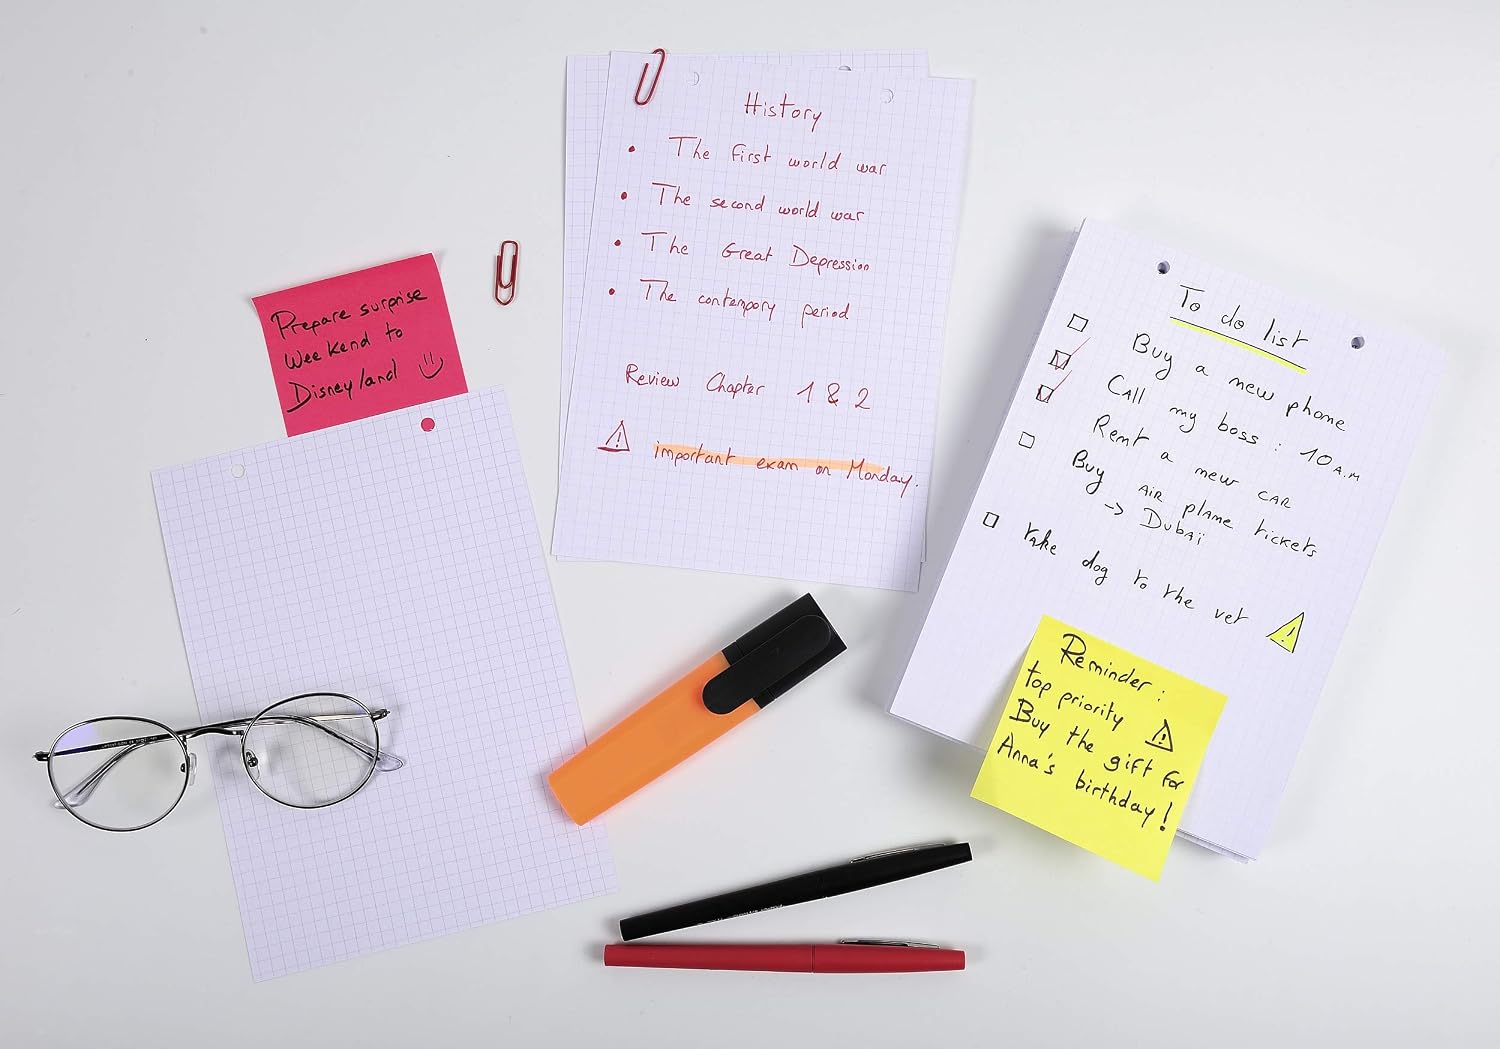 Prepare surprise
weekend to
Disneyland
History
• The first world war
• The second world war
• The Great Depression
• The contempory period
Review Chapter 1 & 2
important exam on Monday.
To do list
Buy a new phone
CAll my boss : 10 A.M
Rent a new CAR
Buy AIR plane tickets
-> DubAï
take dog to the vet
Reminder :
top priority
Buy the gift for
Anna's birthday !